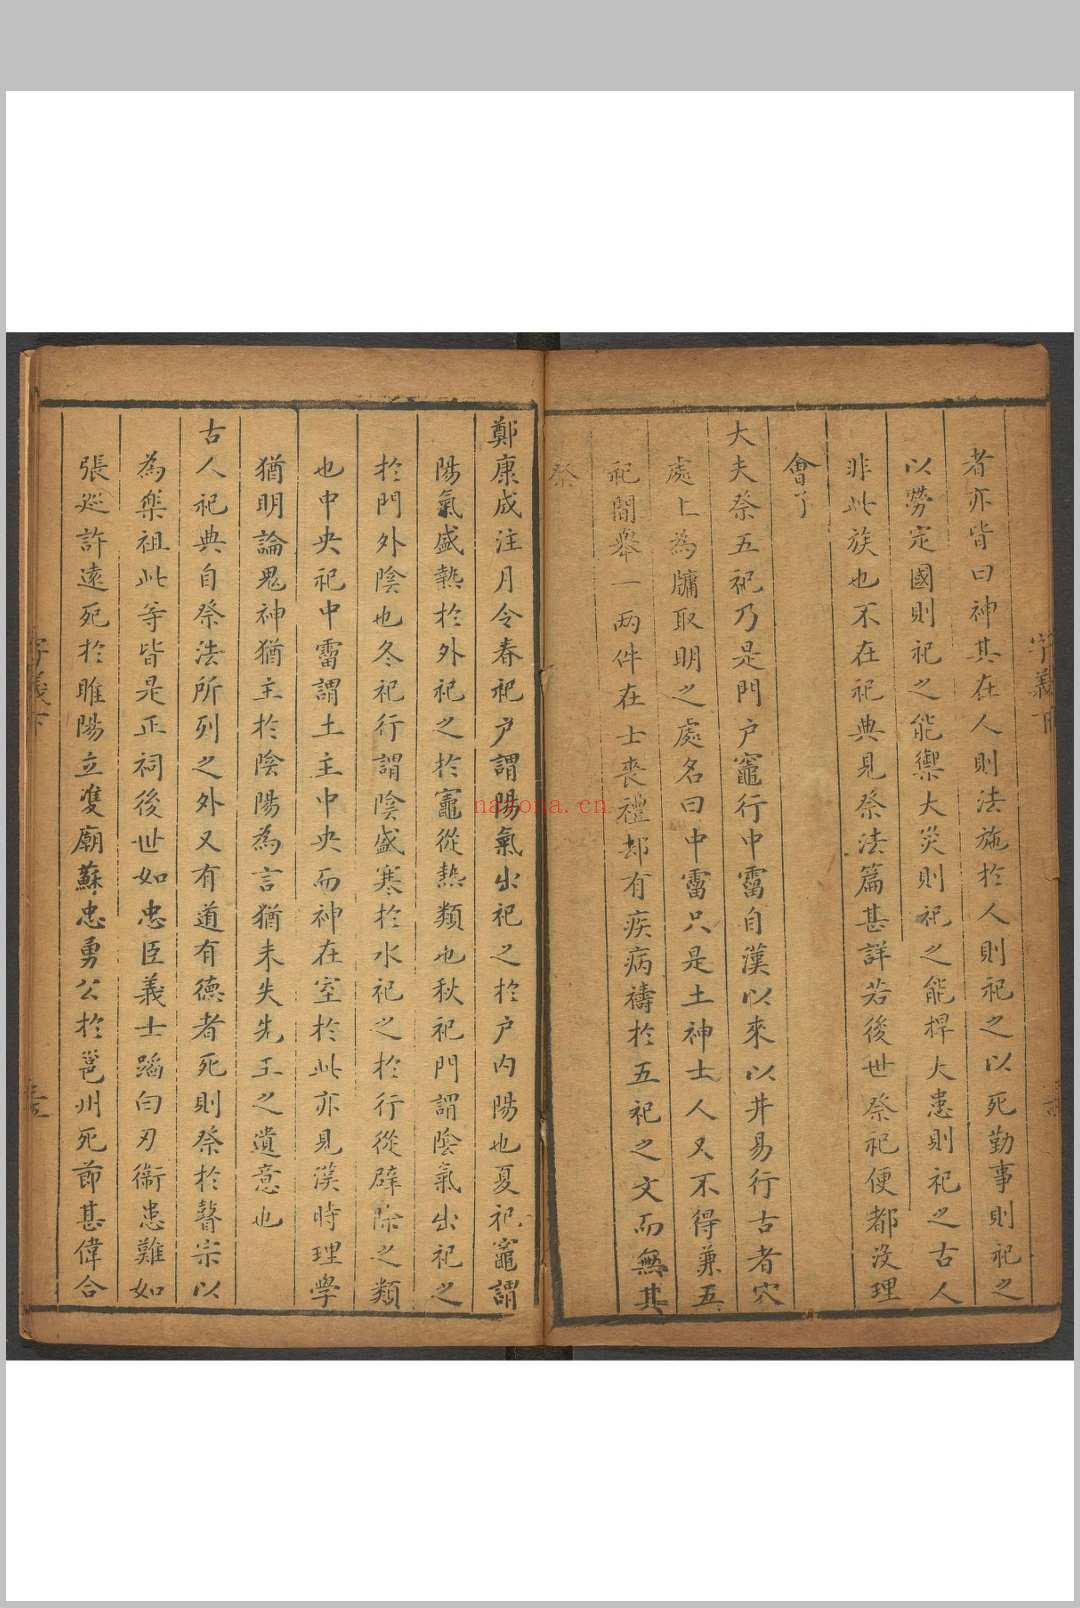 者亦皆曰神其在人則法施於人則祀之以死勤事則祀之
以勞定國則祀之能禦大災則祀之能捍大患則祀之古人
非此族也不在祀典見祭法篇甚詳若後世祭祀便都沒理
會了
大夫祭五祀乃是門户竈行中霤自漢以來以井易行古者穴
處上為牖取明之處名曰中霤只是土神士人又不得兼五
祀間舉一两件在士喪禮却有疾病禱於五祀之文而無其
祭
鄭康成注月令春祀户謂陽氣出祀之於户内陽也夏祀竈謂
陽氣盛熱於外祀之於竈從熱類也秋祀門謂陰氣出祀之
於門外陰也冬祀行謂陰盛寒於水祀之於行從辟除之類
也中央祀中霤謂土主中央而神在室於此亦見漢時理學
猶明論鬼神猶主於陰陽為言猶未失先王之遺意也
古人祀典自祭法所列之外又有道有德者死則祭於瞽宗以
為樂祖此等皆是正祠後世如忠臣義士蹈白刃衛患難如
張廵許遠死於睢陽立䨇廟蘇忠勇公於邕州死節甚偉合
字義下
nayona.cn